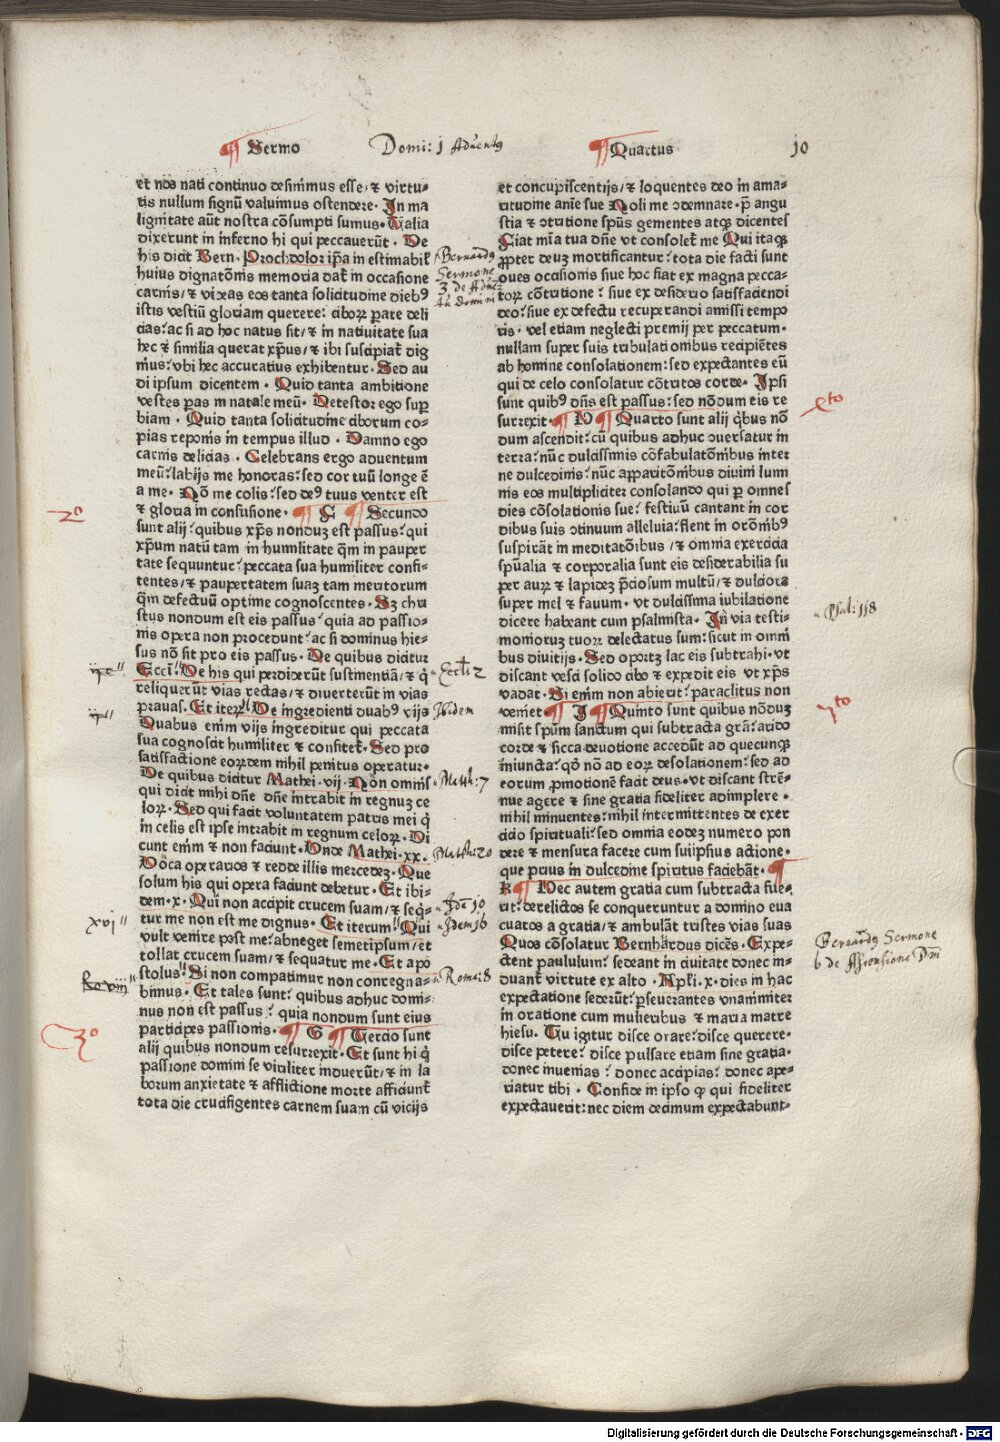 ¶ Sermo
Domi: 1 Advent9
¶ Quartus
10
et nos nati continuo desinimus esse/ ⁊ virtu-
tis nullum signū valuimus ostendere. In ma
lignitate aūt nostra cōsumpti sumus. Talia
dixerunt in inferno hi qui peccauerūt. De
his dicit Bern. Prochdolor ip̄a in estimabil
huius dignatōnis memoria dat̄ in occasione
carnis/ ⁊ vixas eos tanta solicitudine dieb9
istis vestiū gloriam querere: ciboꝝ ꝑare deli
cias: ac si ad hoc natus sit/ ⁊ in natiuitate sua
hec ⁊ similia querat xp̄us/ ⁊ ibi suscipiat̄ dig
nius: vbi hec accuratius exhibentur. Sed au
di ipsum dicentem. Quid tanta ambitione
vestes ꝑas in natale meū. Detestor ego suꝑ
biam. Quid tanta solicitudine ciborum co-
pias reponis in tempus illud. Damno ego
carnis delicias. Celebrans ergo aduentum
meū: labijs me honoras: sed cor tuū longe ē
a me. Nō me colis: sed de9 tuus venter est
⁊ gloria in confusione. ¶ C ¶ Secundo
sunt alij: quibus xp̄s nonduʒ est passus: qui
xp̄um natū tam in humilitate q̄m in pauper
tate sequuntur: peccata sua humiliter confi-
tentes/ ⁊ paupertatem suaʒ tam meritorum
q̄m defectuū optime cognoscentes. Sʒ chri
stus nondum est eis passus: quia ad passio-
nis opera non procedunt: ac si dominus hie-
sus nō sit pro eis passus. De quibus dicitur
Ecci. De his qui perdiderūt sustinentiā/ ⁊ q̄
reliquerūt vias rectas/ ⁊ diuerterūt in vias
prauas. Et iteꝝ De ingredienti duab9 vijs
Duabus enim vijs ingreditur qui peccata
sua cognoscit humiliter ⁊ confitet̄. Sed pro
satisfactione eorꝛdem nihil penitus operatur.
De quibus dicitur Mathei. vij. Non omnis
qui dicit mihi dn̄e dn̄e intrabit in regnuʒ ce
loꝝ. Sed qui facit voluntatem patris mei q̄
in celis est ipse intrabit in regnum celoꝝ. Di
cunt enim ⁊ non faciunt. Unde Mathei. xx.
Voca operarios ⁊ redde illis mercedeʒ. Que
solum his qui opera faciunt debetur. Et ibi-
dem. x. Qui non accipit crucem suam/ ⁊ seq̄-
tur me non est me dignus. Et iterum. Qui
vult venire post me: abneget semetipsum/ et
tollat crucem suam/ ⁊ sequatur me. Et apo
stolus. Si non compatimur non conregna-
bimus. Et tales sunt: quibus adhuc domi-
nus non est passus: quia nondum sunt eius
participes passionis. ¶ G ¶ Tercio sunt
alij quibus nondum resurrexit. Et sunt hi q̄
passione domini se viriliter induerūt/ ⁊ in la
borum anxietate ⁊ afflictione morte afficiunt̄
tota die crucifigentes carnem suam cū vicijs
Bernard9
Sermone
3 de Advē
tu domini
2º
Eccli: 2
Ibidem
Math: 7
Math: 20
Idē 10
xvi
Idem 16
Ro viii
Roma: 8
3º
et concupiscentijs/ ⁊ loquentes deo in ama-
ritudine anīe sue Noli me ↄdemnare. p̄ angu
stia ⁊ ↄtritione sp̄us gementes atqʒ dicentes
Fiat mīa tua dn̄e vt consolet̄ me Qui itaqʒ
ꝓpter deuʒ mortificantur: tota die facti sunt
oues occisionis siue hoc fiat ex magna pecca-
toꝝ cōtritione: siue ex desiderio satisfaciendi
deo: siue ex defectu recuperandi amissi tempo
ris. vel etiam neglecti premij per peccatum.
nullam super suis tribulationibus recipiētes
ab homine consolationem: sed expectantes eū
qui de celo consolatur cōtritos corde. Ipsi
sunt quib9 dn̄s est passus: sed nōdum eis re
surrexit. ¶ H ¶ Quarto sunt alij q̄bus nō
dum ascendit: cū quibus adhuc ↄuersatur in
terra: nūc dulcissimis cōfabulatōnibus inter
ne dulcedinis: nūc apparitōnibus diuini lumi
nis eos multipliciter consolando qui ꝑ omnes
dies cōsolationis sue: festiuū cantant in cor
dibus suis ↄtinuum alleluia: flent in orōnib9
suspirāt in meditatōibus/ ⁊ omnia exercicia
sp̄ualia ⁊ corporalia sunt eis desiderabilia su
per auꝝ ⁊ lapideʒ p̄ciosum multū/ ⁊ dulciora
super mel ⁊ fauum. vt dulcissima iubilatione
dicere habeant cum psalmista. In via testi-
monioruʒ tuoꝝ delectatus sum: sicut in omni
bus diuitijs. Sed oportʒ lac eis subtrahi. vt
discant vesci solido cibo ⁊ expedit eis vt xp̄s
vadat. Si enim non abierit: paraclitus non
veniet ¶ I ¶ Quinto sunt quibus nōduʒ
misit sp̄um sanctum qui subtracta grā: arido
corde ⁊ sicca deuotione accedūt ad quecunqʒ
iniuncta: qō nō ad eoꝝ desolationem: sed ad
eorum ꝓmotionē facit deus. vt discant strē-
nue agere ⁊ sine gratia fideliter adimplere.
nihil minuentes: nihil intermittentes de exer
cicio spirituali: sed omnia eodeʒ numero pon
dere ⁊ mensura facere cum suiipsius actione.
que prius in dulcedine spiritus faciebāt. ¶
K ¶ Nec autem gratia cum subtracta fue-
rit: derelictos se conqueruntur a domino eua
cuatos a gratia/ ⁊ ambulāt tristes vias suas
Quos cōsolatur Bernhardus dicēs. Expe-
ctent paululum: sedeant in ciuitate donec in-
duant̄ virtute ex alto. Apl̄i. x. dies in hac
expectatione sederūt: ꝑseuerantes vnanimiter
in oratione cum mulieribus ⁊ maria matre
hiesu. Tu igitur disce orare: disce querere.
disce petere: disce pulsare etiam sine gratia.
donec inuenias: donec accipias: donec ape-
riatur tibi. Confide in ipso qꝫ qui fideliter
expectauerit: nec diem decimum expectabunt-
4to
Psal: 118
5to
Bernard9 Sermone
6 de Ascensione Dni
Digitalisierung gefördert durch die Deutsche Forschungsgemeinschaft - DFG